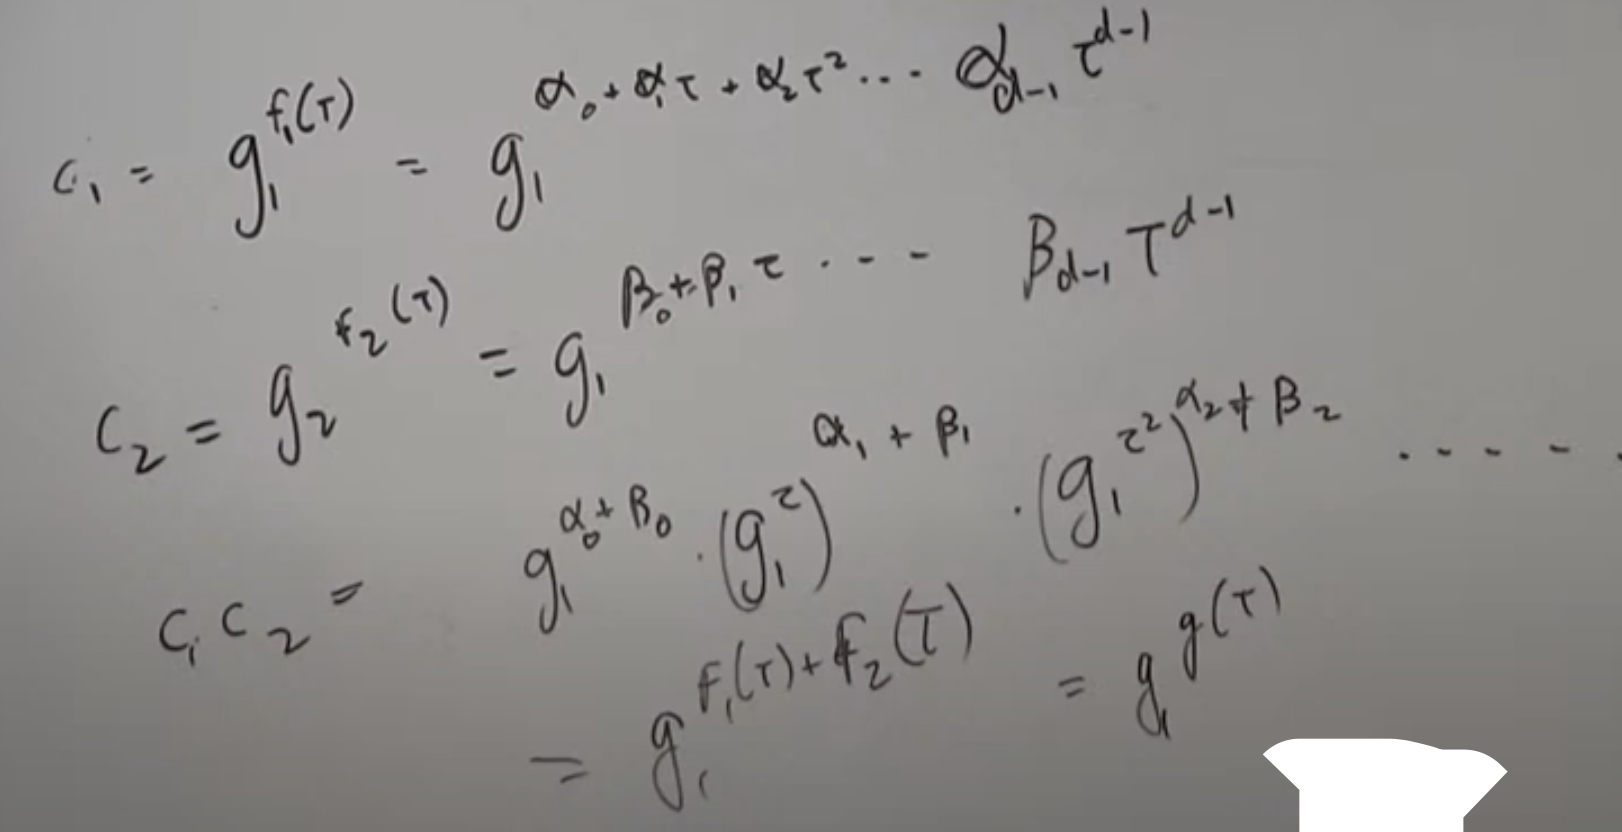 c₁ = g₁^{f₁(τ)} = g₁^{α₀ + α₁τ + α₂τ² ... α_{d-1} τ^{d-1}}
c₂ = g₂^{f₂(τ)} = g₁^{β₀ + β₁τ .... β_{d-1} τ^{d-1}}
c₁c₂ = g₁^{α₀ + β₀} · (g₁^τ)^{α₁ + β₁} · (g₁^{τ²})^{α₂ + β₂} .....
= g₁^{f₁(τ) + f₂(τ)} = g₁^{g(τ)}